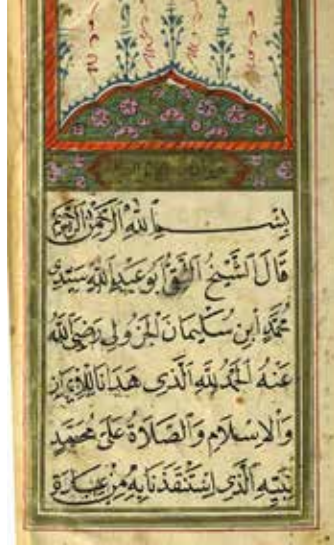 بِسْمِ اللهِ الرَّحْمٰنِ الرَّحِيْمِ
قَالَ الشَّيْخُ التَّقِىُّ اَبُوعَبْدِ اللهِ سَيِّدِى
مُحَمَّدِ ابْنِ سُلَيْمَانَ الْجَزُولِى رَضِىَ اللهُ
عَنْهُ اَلْحَمْدُ لِلّٰهِ الَّذِى هَدَانَا لِلْاِيمَانِ
وَالْاِسْلَامِ وَالصَّلَاةُ عَلَى مُحَمَّدٍ
نَبِيِّهِ الَّذِى اسْتَنْقَذَنَا بِهِ مِنْ عِبَادَةِ